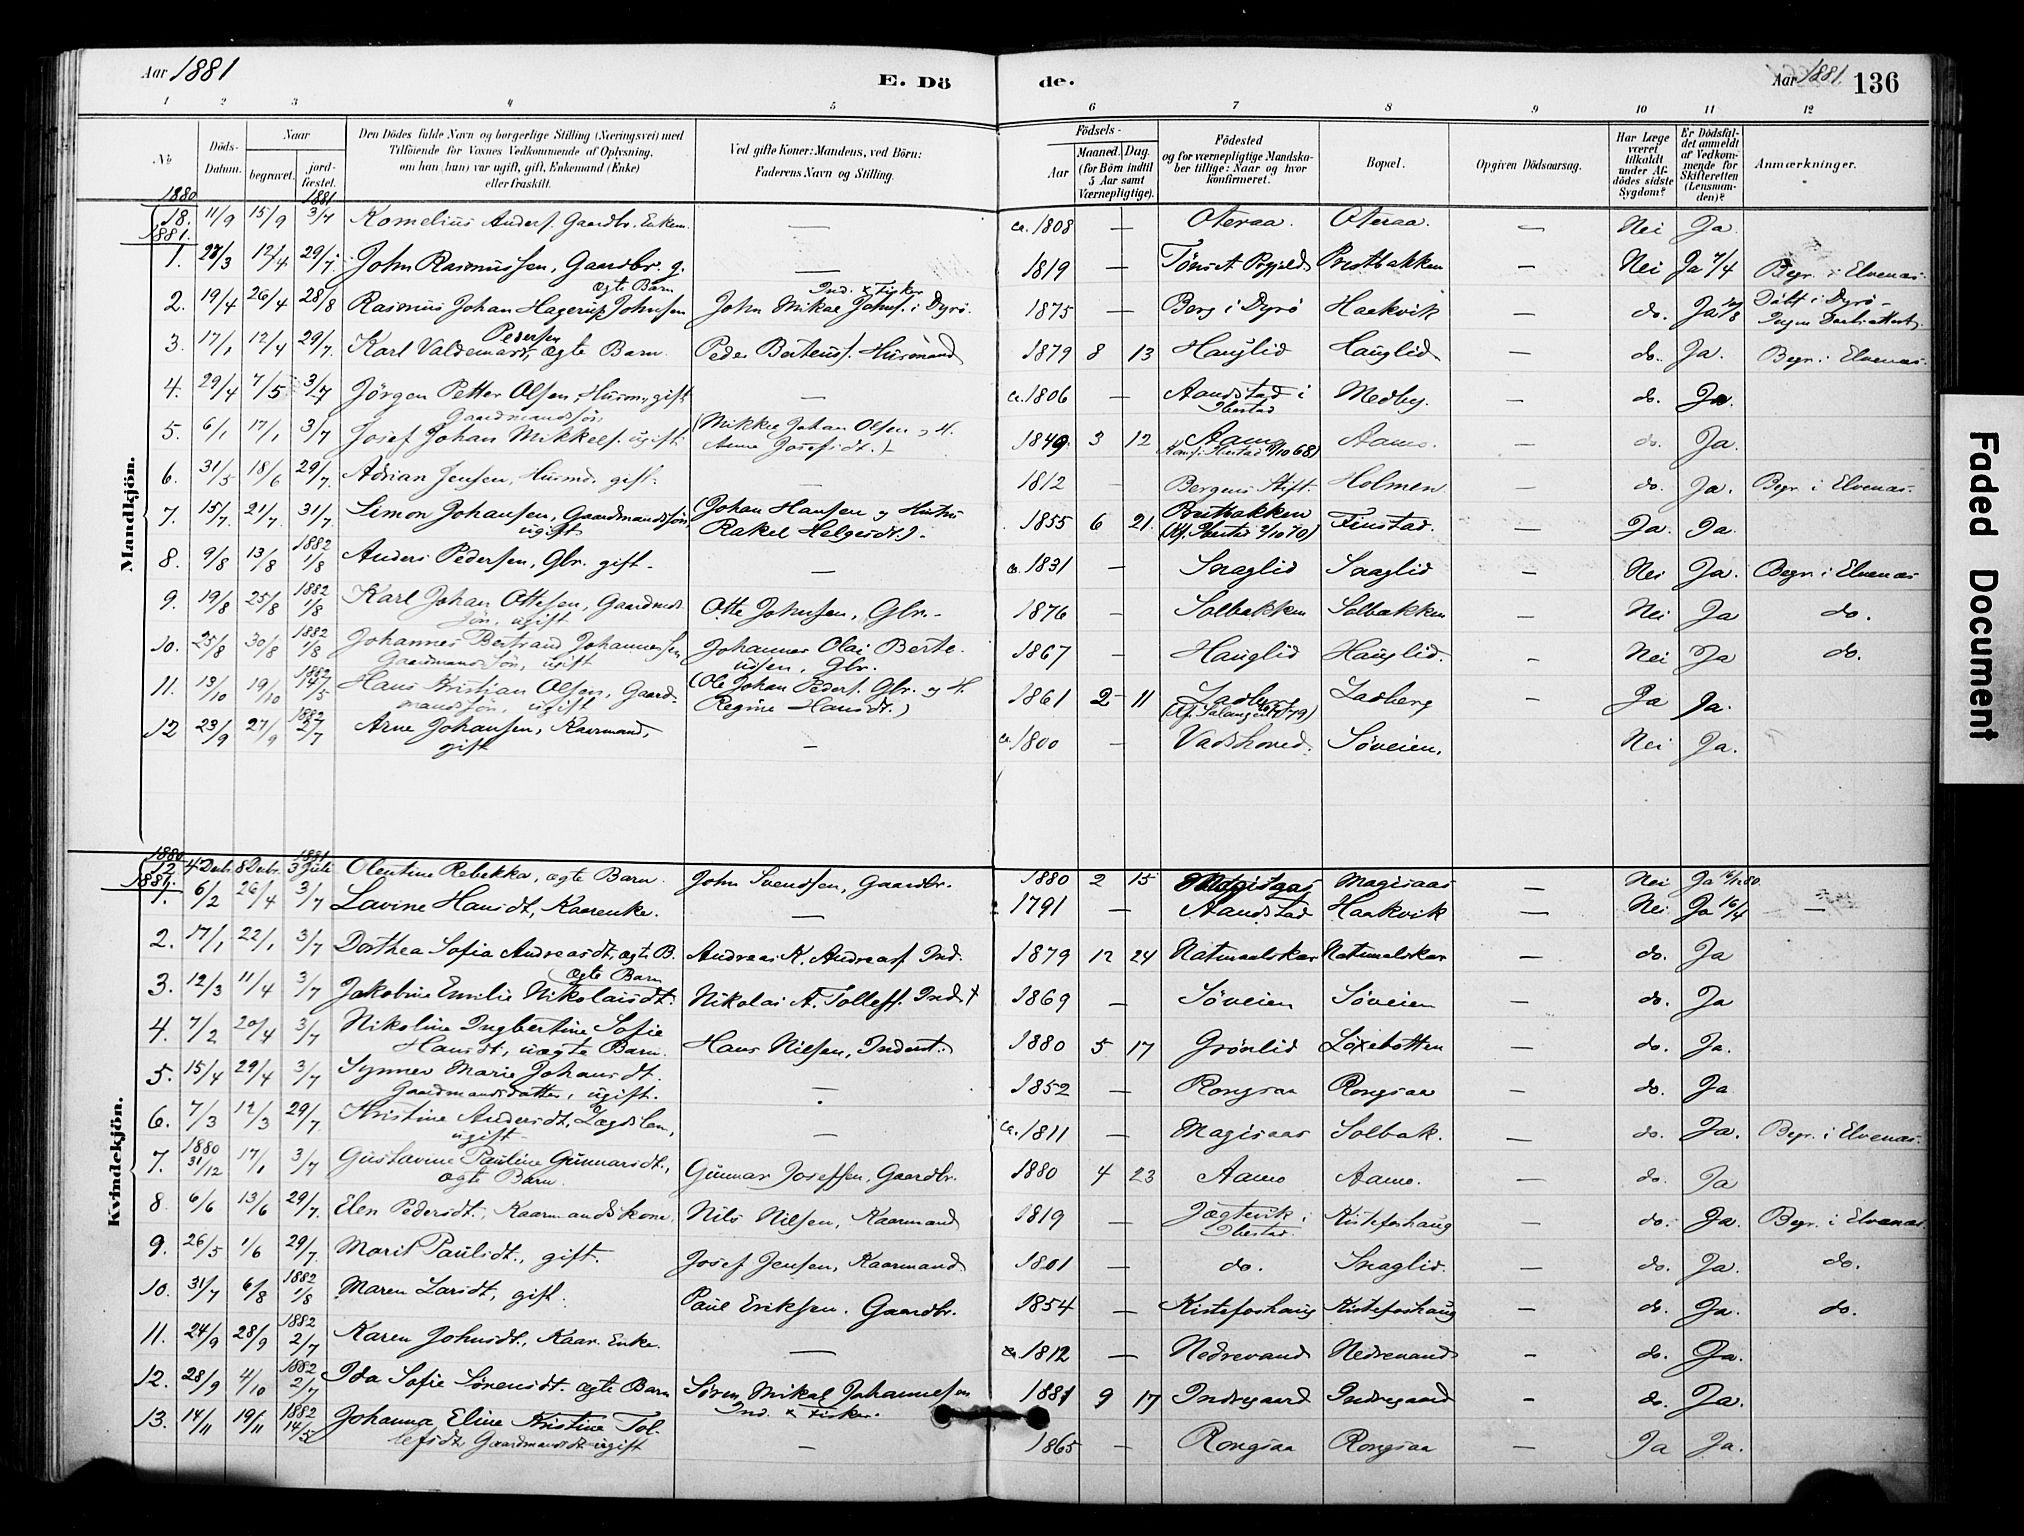 Aar 1881 E. Dö de. Aar 1881. 136
1 2 3 4 5 6 7 8 9 10 11 12
No Döds-Datum. Naar begravet. jord-fæstet. Den Dödes fulde Navn og borgerlige Stilling (Næringsvei) med Tilföiende for Voxnes Vedkommende af Oplysning, om han (hun) var ugift, gift, Enkemand (Enke) eller fraskilt. Ved gifte Koner: Mandens, ved Börn: Faderens Navn og Stilling. Födsels- Aar Maaned. Dag. (for Börn indtil 5 Aar samt Værnepligtige). Födested og for værnepligtige Mandska-ber tillige: Naar og hvor konfirmeret. Bopæl. Opgiven Dödsaarsag. Har Læge været tilkaldt under Af-dödes sidste Sygdom? Er Dödsfal-det anmeldt af Vedkom-mende for Skifteretten (Lensman-den)? Anmærkninger.
Mandkjön.
1880 1881
18. 11/9 15/9 3/7 Kornelius Anders. Gaardbr. Enkem. — ca. 1808 — Oteraa. Oteraa. — Nei Ja.
1881.
1. 27/3 12/4 29/7 John Rasmussen, Gaardbr. g. — 1819 — Tönset Prgjeld Prestbakken — Nei Ja 7/4 Begr. i Elvenæs.
2. 19/4 26/4 28/8 Rasmus Johan Hagerup Johnsen ægte Barn John Mikal Johns. i Dyrö. Ind. & Fisker 1875 — Berg i Dyrö Haakvik — do. Ja Dödt i Dyrö -
3. 17/1 12/4 29/7. Karl Valdemar Pedersen, ægte Barn. Peder Berteus. Husmand 1879 8 13 Hauglid Hauglid — do. Ja. Begr. i Elvenæs.
4. 29/4 7/5 3/7 Jörgen Petter Olsen, Husm., gift — ca. 1806 — Aandstad i Ibestad Medby. — do. Ja.
5. 6/1 17/1 3/7 Josef Johan Mikkels. ugift. Gaardmandssön (Mikkel Johan Olsen og H. Anne Josefsdt.) 1849. 3 12 Aamo Konf. i Ibestad /10 68) Aamo. — do. Ja.
6. 31/5 18/6 29/7. Adrian Jensen, Husmd. gift. — 1812 — Bergens Stift. Holmen — do. Ja. Begr. i Elvenæs.
7. 15/7. 21/7. 31/7. Simon Johansen, Gaardmandssön ugift (Johan Hansen og Hustru Rakel Helgesdt.) - 1855 6 21. Prestbakken (Kf. Ibestad 2/10 70) Finstad. — Ja. Ja.
8. 9/8 13/8 1882 1/8 Anders Pedersen, Gbr. gift - — ca. 1831 — Snaglid Snaglid — Nei Ja. Begr. i Elvenæs
9. 19/8 25/8 1882 1/8 Karl Johan Ottesen, Gaardmds. sön, ugift Otto Johnsen, Gbr. - 1876 — Solbakken Solbakken — Nei Ja do.
10. 25/8 30/8 1882 1/8 Johannes Bertrand Johannessen, Gaardmandssön, ugift Johannes Olai Berte-usen, Gbr. 1867 — Hauglid Hauglid. — Nei Ja do.
11. 13/10 19/10 1882 14/5 Hans Kristian Olsen, Gaard-mandssön, ugift (Ole Johan Peders. Gbr. og H. Regine Hansdt.) 1861 2 11 Ladberg (Kf. Salangen /79) Ladberg — Ja Ja.
12 23/9 27/9 1882 2/7 Arne Johansen, Kaarmand, gift — ca. 1800 — Vadshoved. Söveien. — Nei Ja.
Kvindekjön.
1880 1881
12 4 Decbr. 8 Decbr. 3 Juli Olentine Rebekka, ægte Barn. John Svendsen, Gaardbr. 1880 2 15 Magisaas Magisaas — Nei Ja 16/12 80.
1881.
1. 6/2 26/4 3/7 Lavine Hansdt, Kaarenke. — 1791 — Aandstad Haakvik — Nei Ja 16/4 —
2. 17/1 22/1 3/7 Dorthea Sofia Andreasdt, ægt. B. Andreas K. Andreass. Ind. 1879 12 24 Natmaalskar Natmaalskar — do. Ja
3. 12/3 11/4 3/7 Jakobine Emilie Nikolaisdt. ægte Barn Nikolai A. Tollefs. Ind. + 1869 — Söveien Söveien — do. Ja
4. 7/2 20/4 3/7 Nikoline Ingbertine Sofie Hansdt, uægte Barn. Hans Nilsen, Inderst. 1880 5 17 Grönlid Löxebotten — do. Ja.
5. 15/4 29/4 3/7 Synnev Marie Johansdt. Gaardmandsdatter, ugift. — 1852 — Rongsaa Rongsaa — do. Ja
6. 7/3 12/3 29/7. Kristine Andersdt, Lægdslem, ugift — ca. 1811 — Magisaas Solbak. — do. Ja. Begr. i Elvenæs.
7. 1880 31/12 17/1 3/7 Gustavine Pauline Gunnarsdt., ægte Barn. Gunnar Josefsen, Gaardbr. 1880 4 23 Aamo Aamo. — do. Ja
8. 6/6 13/6 29/7. Elen Pedersdt., Kaarmandskone. Nils Nilsen, Kaarmand 1819 — Jægtvik i Ibestad. Kistefoshaug — do. Ja. Begr. i Elvenæs.
9. 26/5 1/6 29/7. Marit Paulsdt., gift. Josef Jensen, Kaarmand. 1801 — do. Snaglid. — do. Ja. do.
10. 31/7 6/8 1882 1/8 Maren Larsdt, gift. Paul Eriksen. Gaardbr. 1854 — Kistefoshaug Kistefoshaug — do. Ja. do.
11. 24/9 28/9 1882 2/7 Karen Johnsdt, Kaar. Enke. — ca. 1812 — Nedrevand Nedrevand — do. Ja.
12. 28/9 4/10 1882 2/7 Ida Sofie Sörensdt. ægte Barn Sören Mikal Johannesen Ind. & Fisker. 1881 9 17 Indregaard Indregaard — do. Ja.
13. 14/11 19/11 1882 14/5 Johanna Eline Kristine Tol-lefsdt, Gaardmandsdt ugift — 1865 — Rongsaa Rongsaa — Ja Ja.
Faded Document